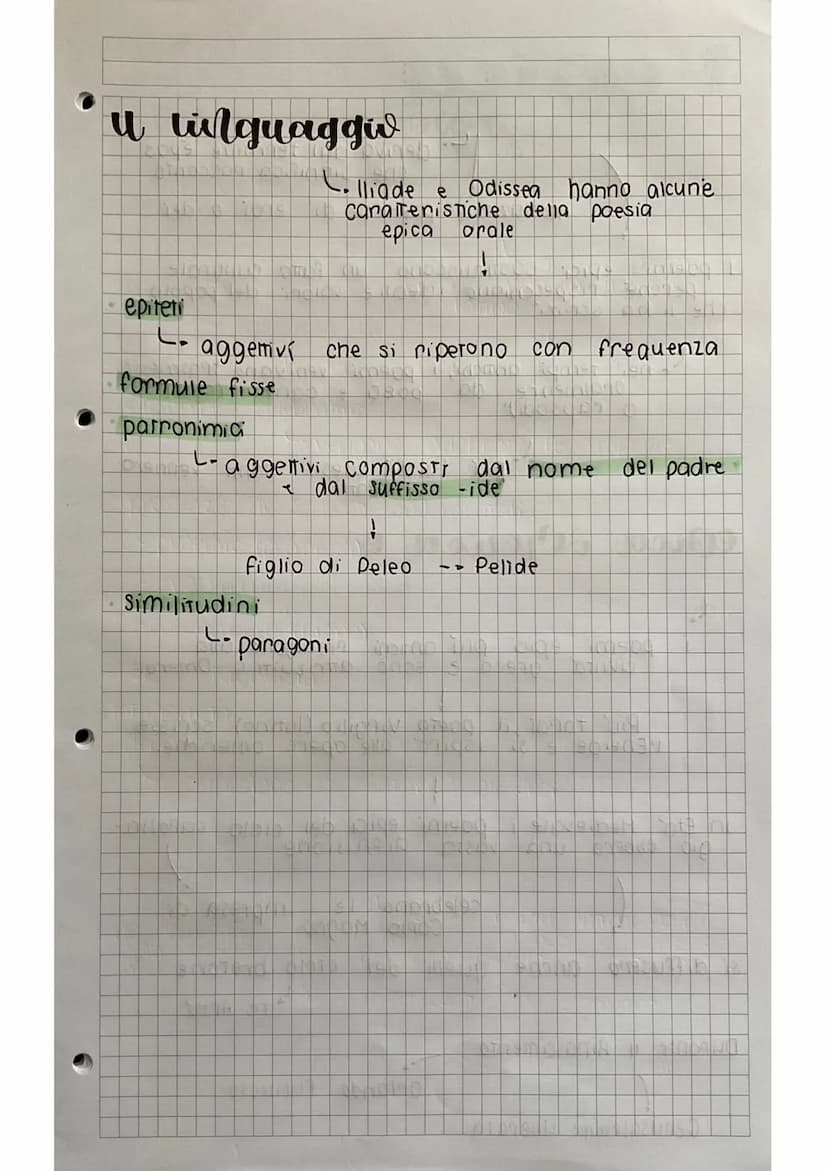 Il linguaggio
Iliade e Odissea hanno alcune
caratteristiche della poesia
epica orale
epiteti
aggettivi che si ripetono con frequenza
formule fisse
patronimici
aggettivi composti dal nome del padre
e dal suffisso -ide
figlio di Peleo --> Pelide
similitudini
paragoni